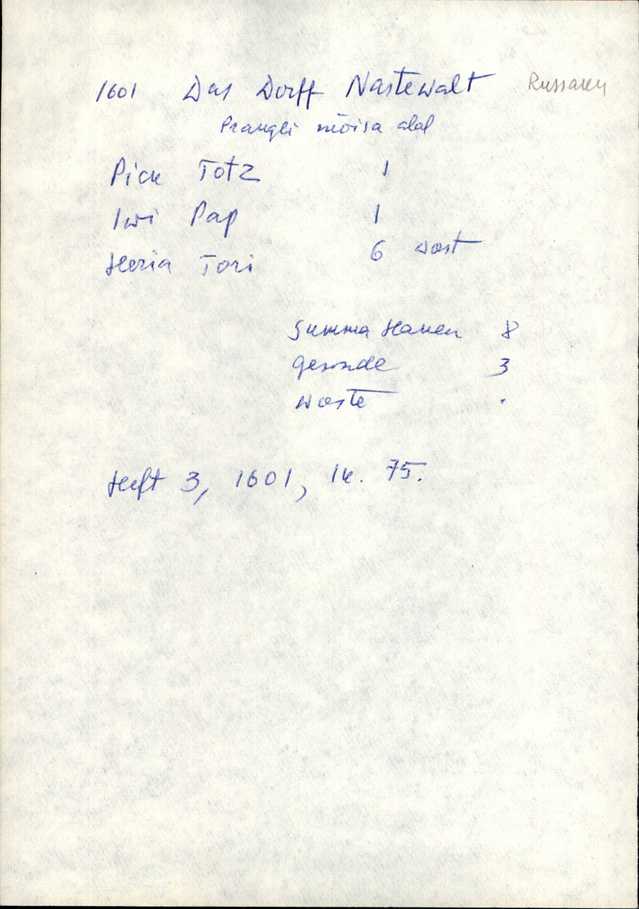 1601 Das Dorff Nastewalt
Prangli mõisa alal
Pick Totz 1
Iwi Pap 1
Heria Tori 6 wost
Summa Haken 8
Gesonde 3
Woste .
Heft 3, 1601, lk. 75.